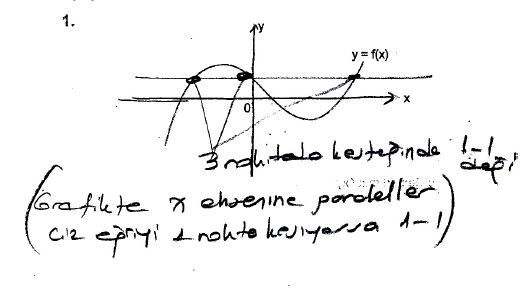 1.
y
y = f(x)
x
0
3 noktada kestiğinde 1-1 değil
(Grafikte x eksenine paraleller
çiz eğriyi 1 nokta kesiyorsa 1-1)